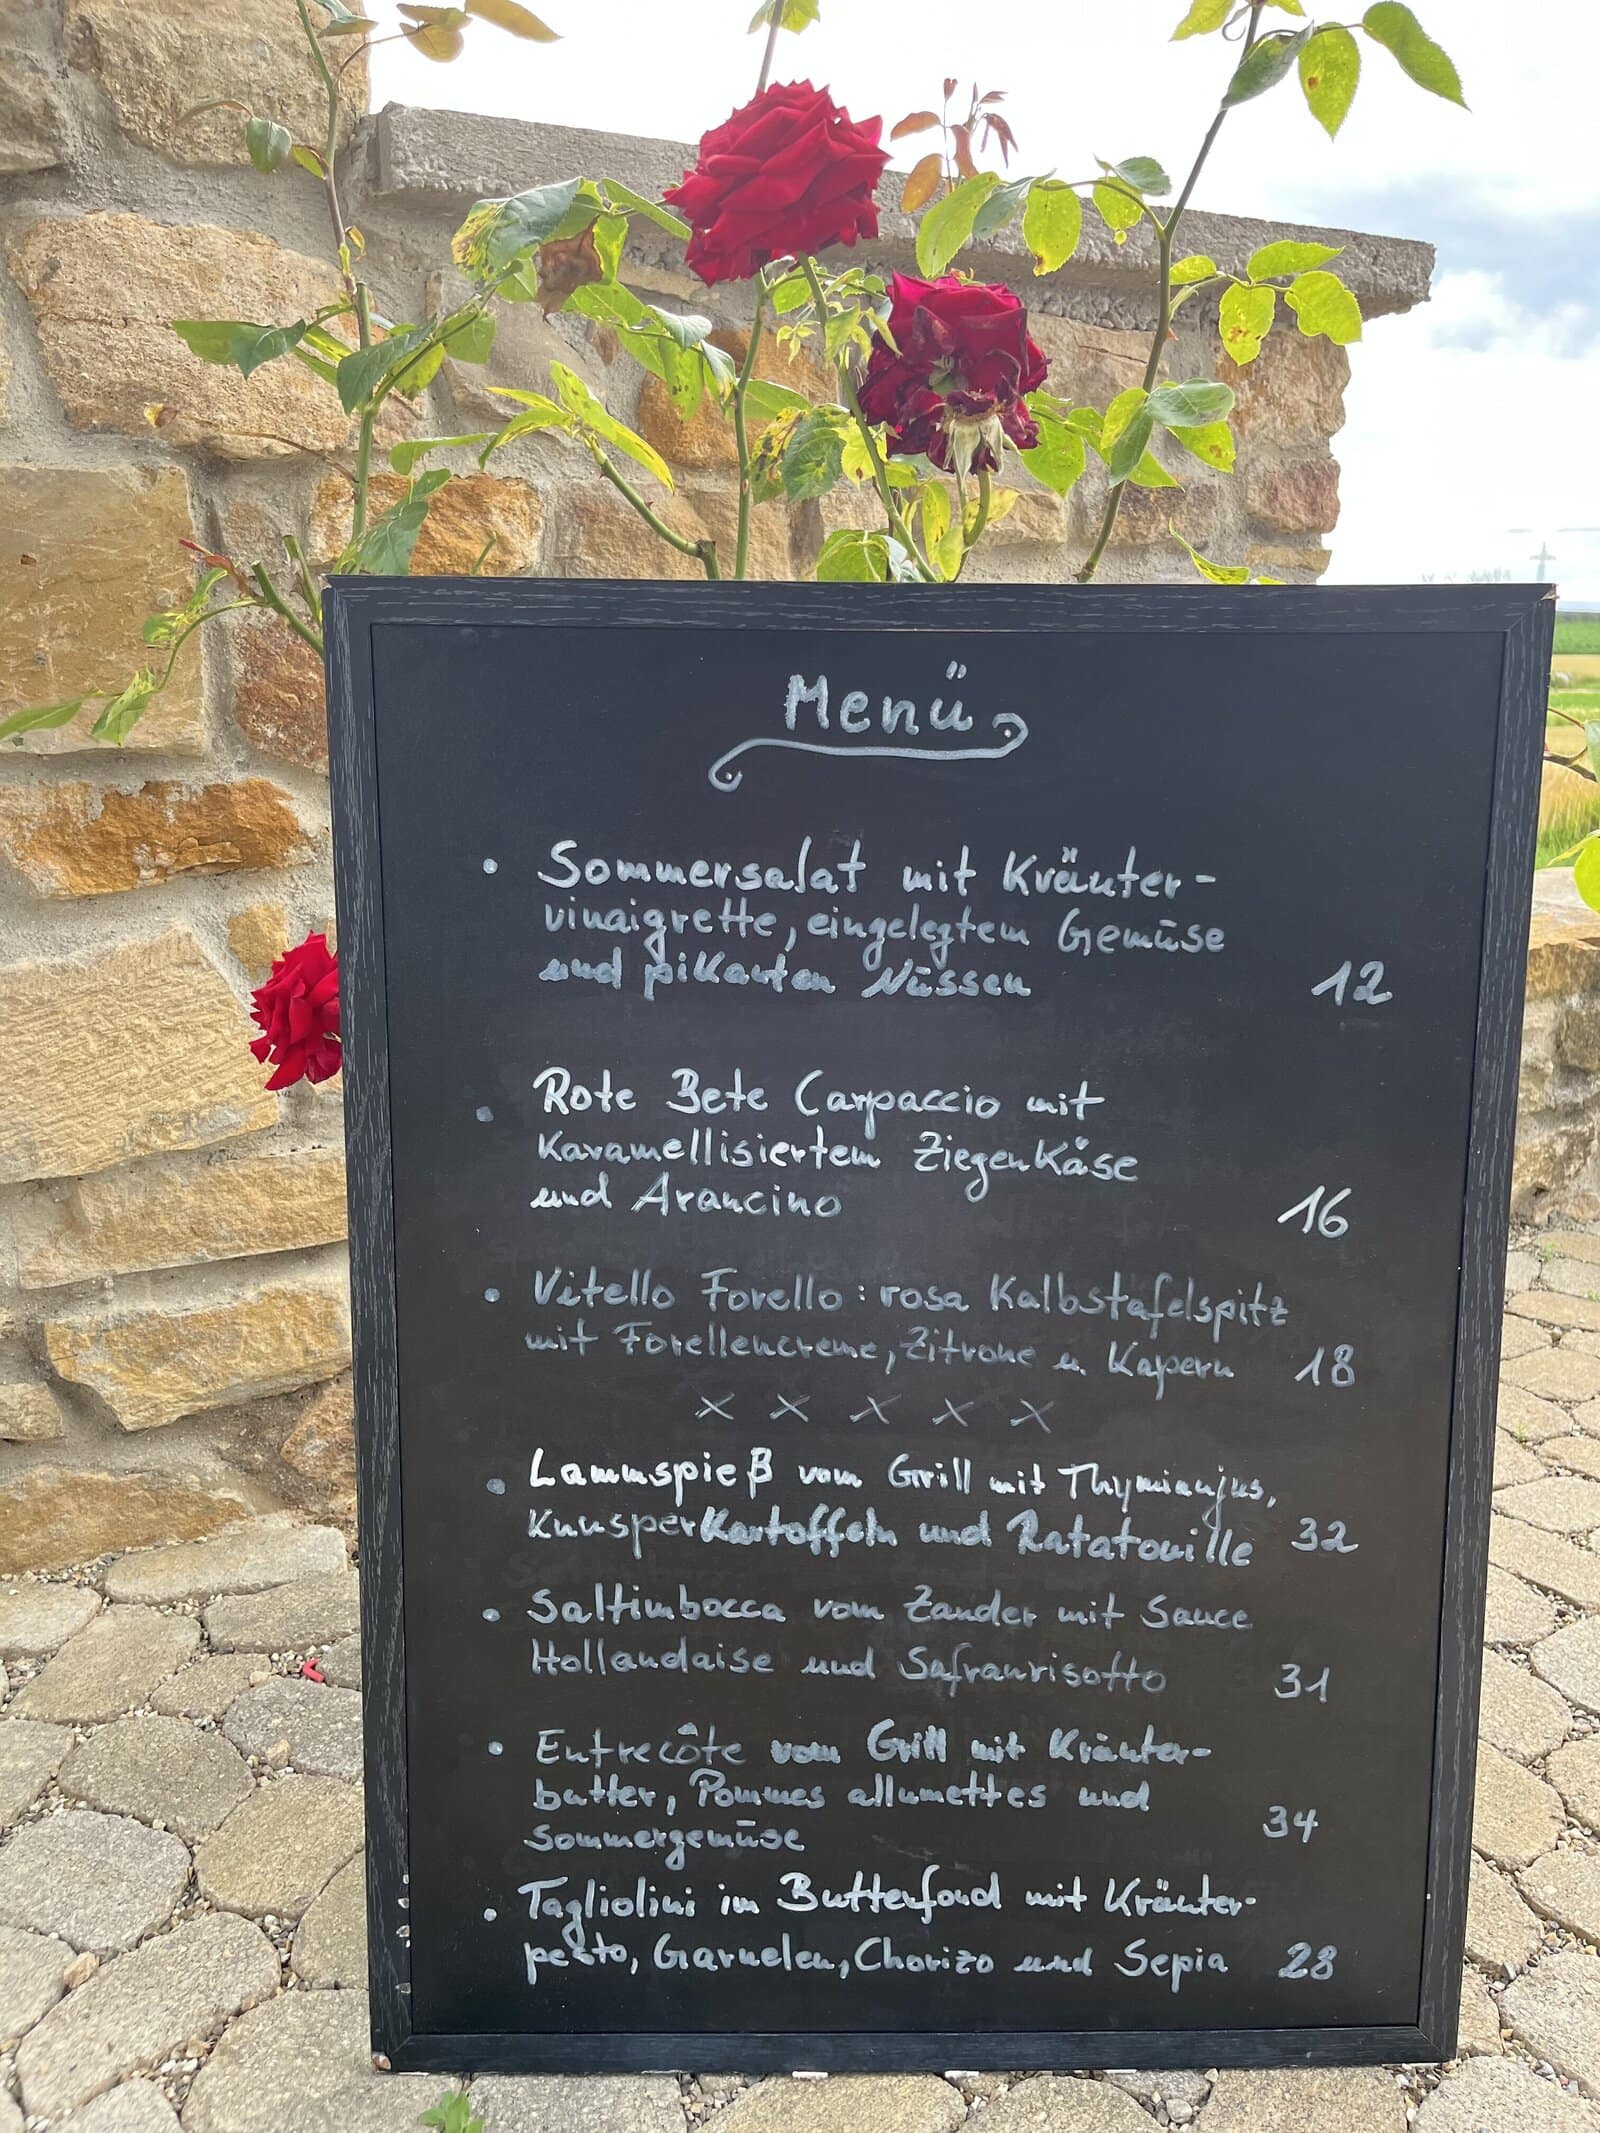 Menü
• Sommersalat mit Kräuter-
vinaigrette, eingelegtem Gemüse
und pikanten Nüssen 12
• Rote Bete Carpaccio mit
Karamellisiertem Ziegenkäse
und Arancino 16
• Vitello Forello: rosa Kalbstafelspitz
mit Forellencreme, Zitrone u. Kapern 18
x x x x x
• Lammspieß vom Grill mit Thymianjus,
Knusperkartoffeln und Ratatouille 32
• Saltimbocca vom Zander mit Sauce
Hollandaise und Safranrisotto 31
• Entrecôte vom Grill mit Kräuter-
butter, Pommes allumettes und
Sommergemüse 34
• Tagliolini im Butterfond mit Kräuter-
pesto, Garnelen, Chorizo und Sepia 28